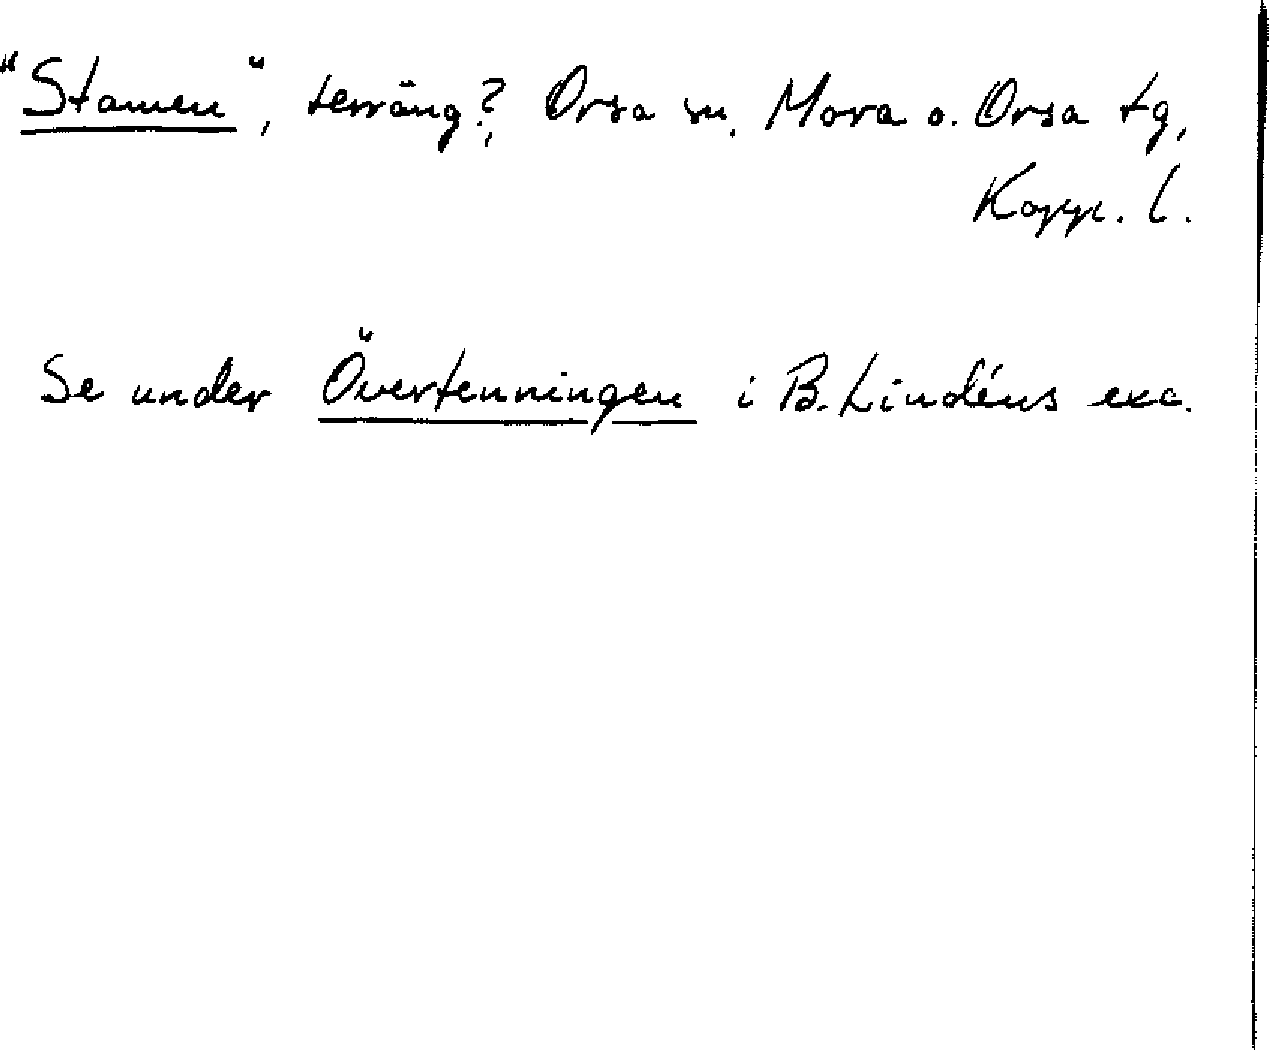 "Stamen", terräng?, Orsa sn. Mora o. Orsa tg,
Kopp. l.
Se under Övertenningen i B. Lindéns exc.